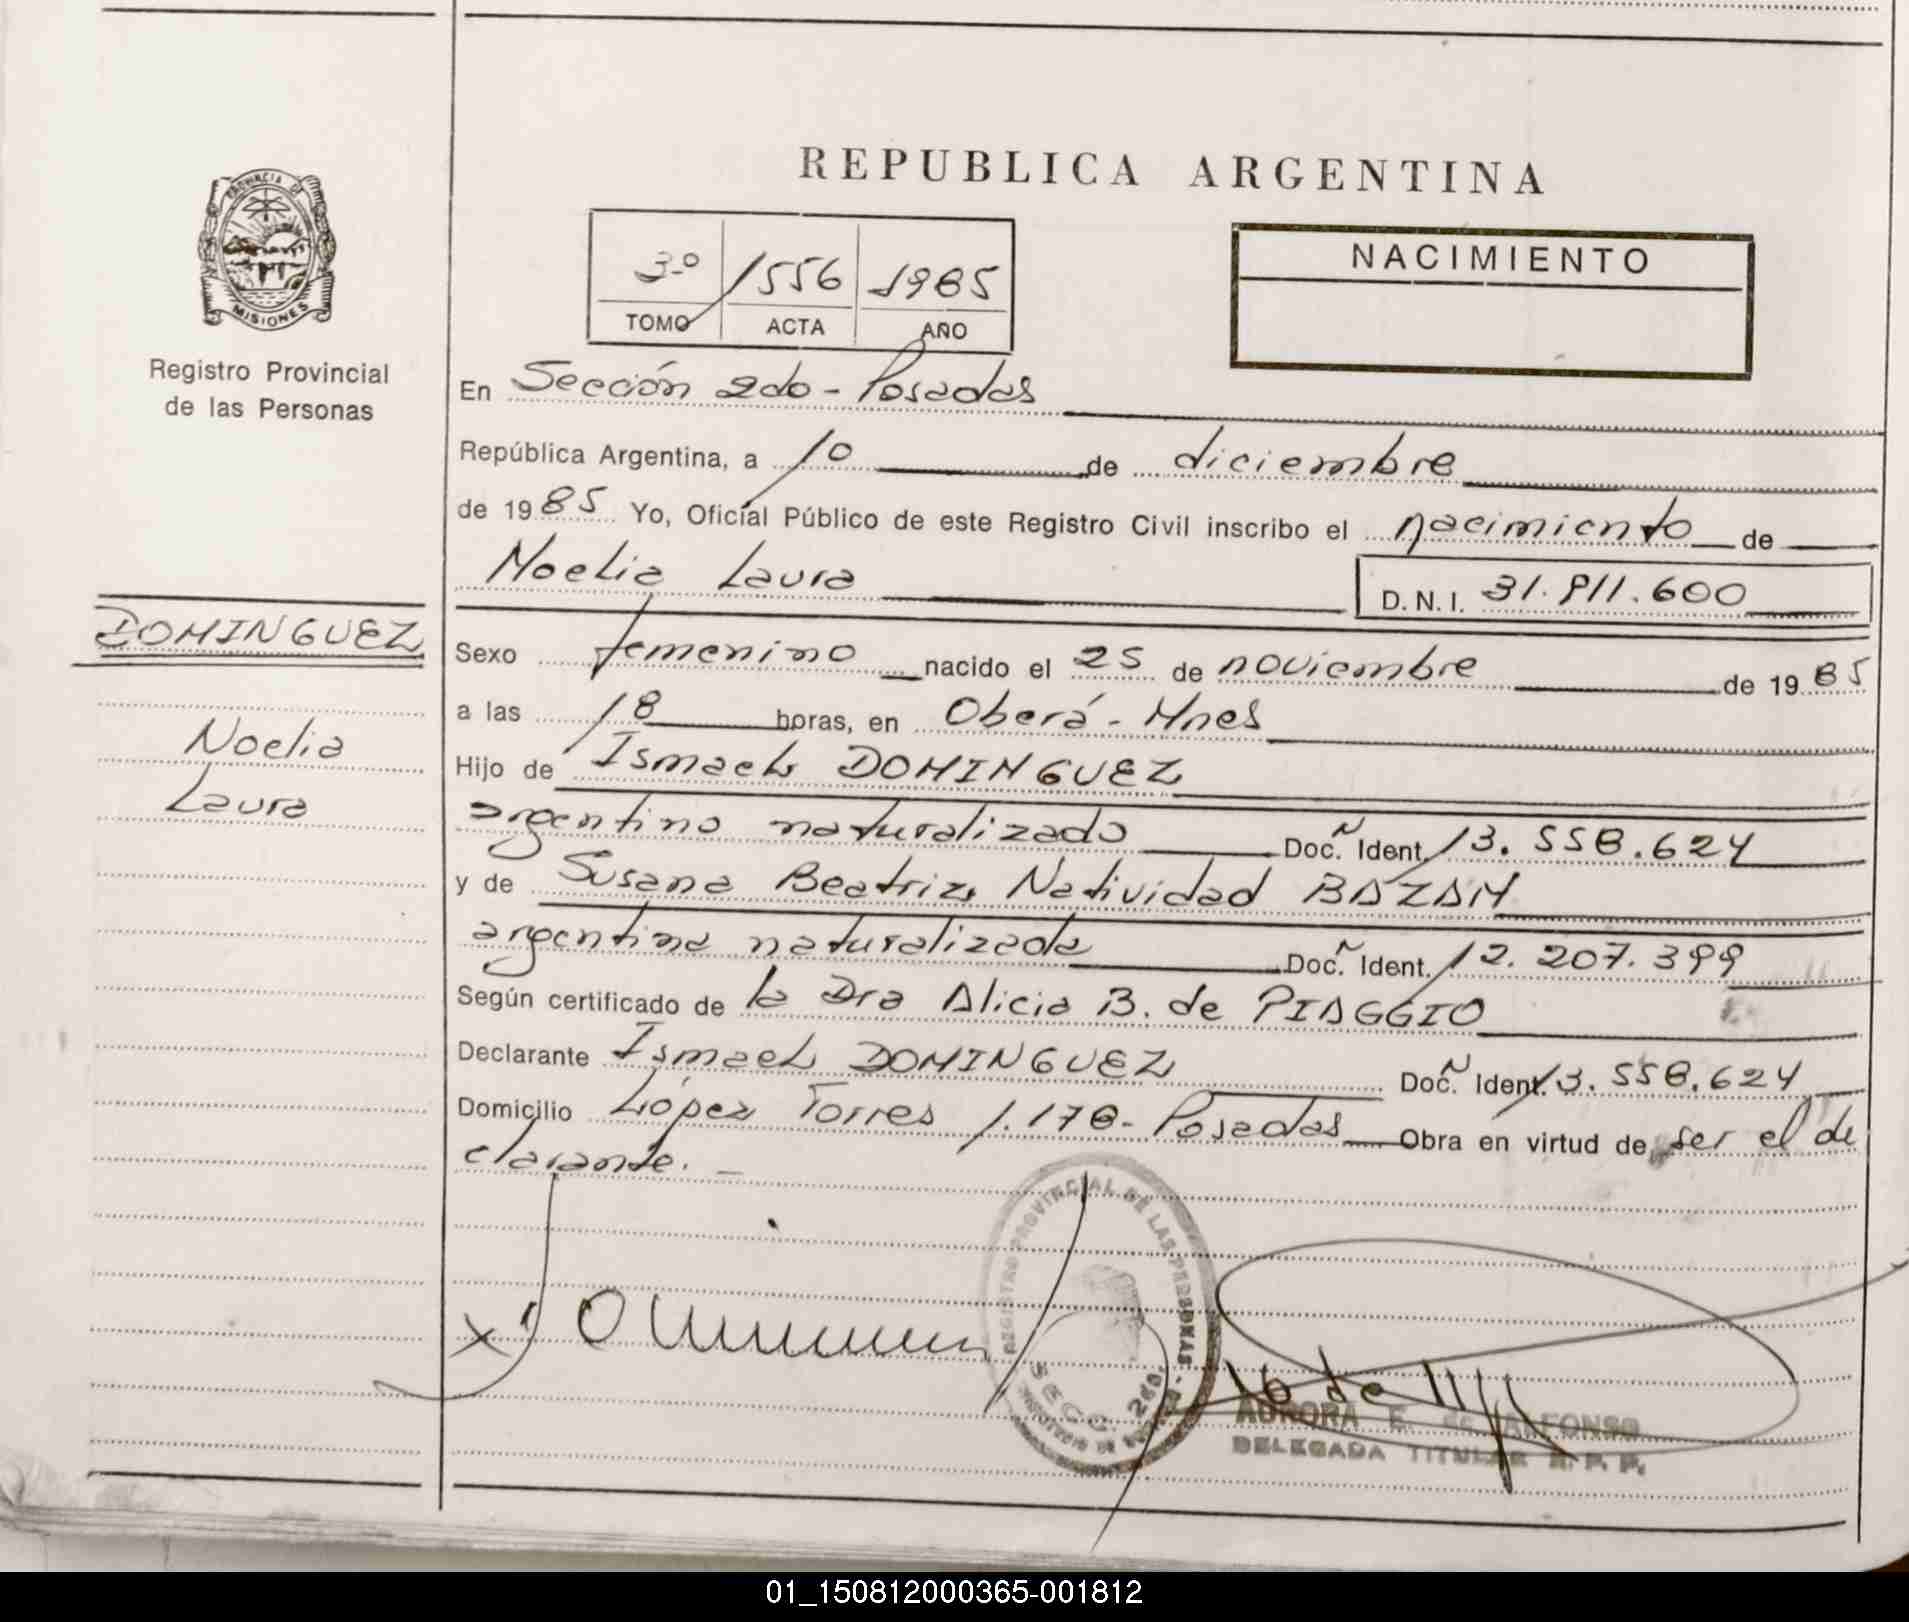 REPUBLICA ARGENTINA
PROVINCIA DE
MISIONES
Registro Provincial
de las Personas
3º 1556 1985
TOMO ACTA AÑO
NACIMIENTO
En Sección 2do - Posadas
República Argentina, a 10 de diciembre
de 1985 Yo, Oficial Público de este Registro Civil inscribo el nacimiento de
Noelia Laura D.N.I. 31.811.600
DOMINGUEZ
Noelia
Laura
Sexo femenino nacido el 25 de noviembre de 1985
a las 18 horas, en Oberá - Mnes
Hijo de Ismael DOMINGUEZ
argentino naturalizado Doc. Ident. 13.558.624
y de Susana Beatriz Natividad BAZAN
argentina naturalizada Doc. Ident. 12.207.399
Según certificado de la Dra Alicia B. de PIAGGIO
Declarante Ismael DOMINGUEZ Doc. Ident. 13.558.624
Domicilio López Torres 1.178 - Posadas Obra en virtud de ser el de
clarante. -
REGISTRO PROVINCIAL DE LAS PERSONAS
SECC. 2da.
AURORA E. de ALFONSO
DELEGADA TITULAR R. P. P.
01_150812000365-001812